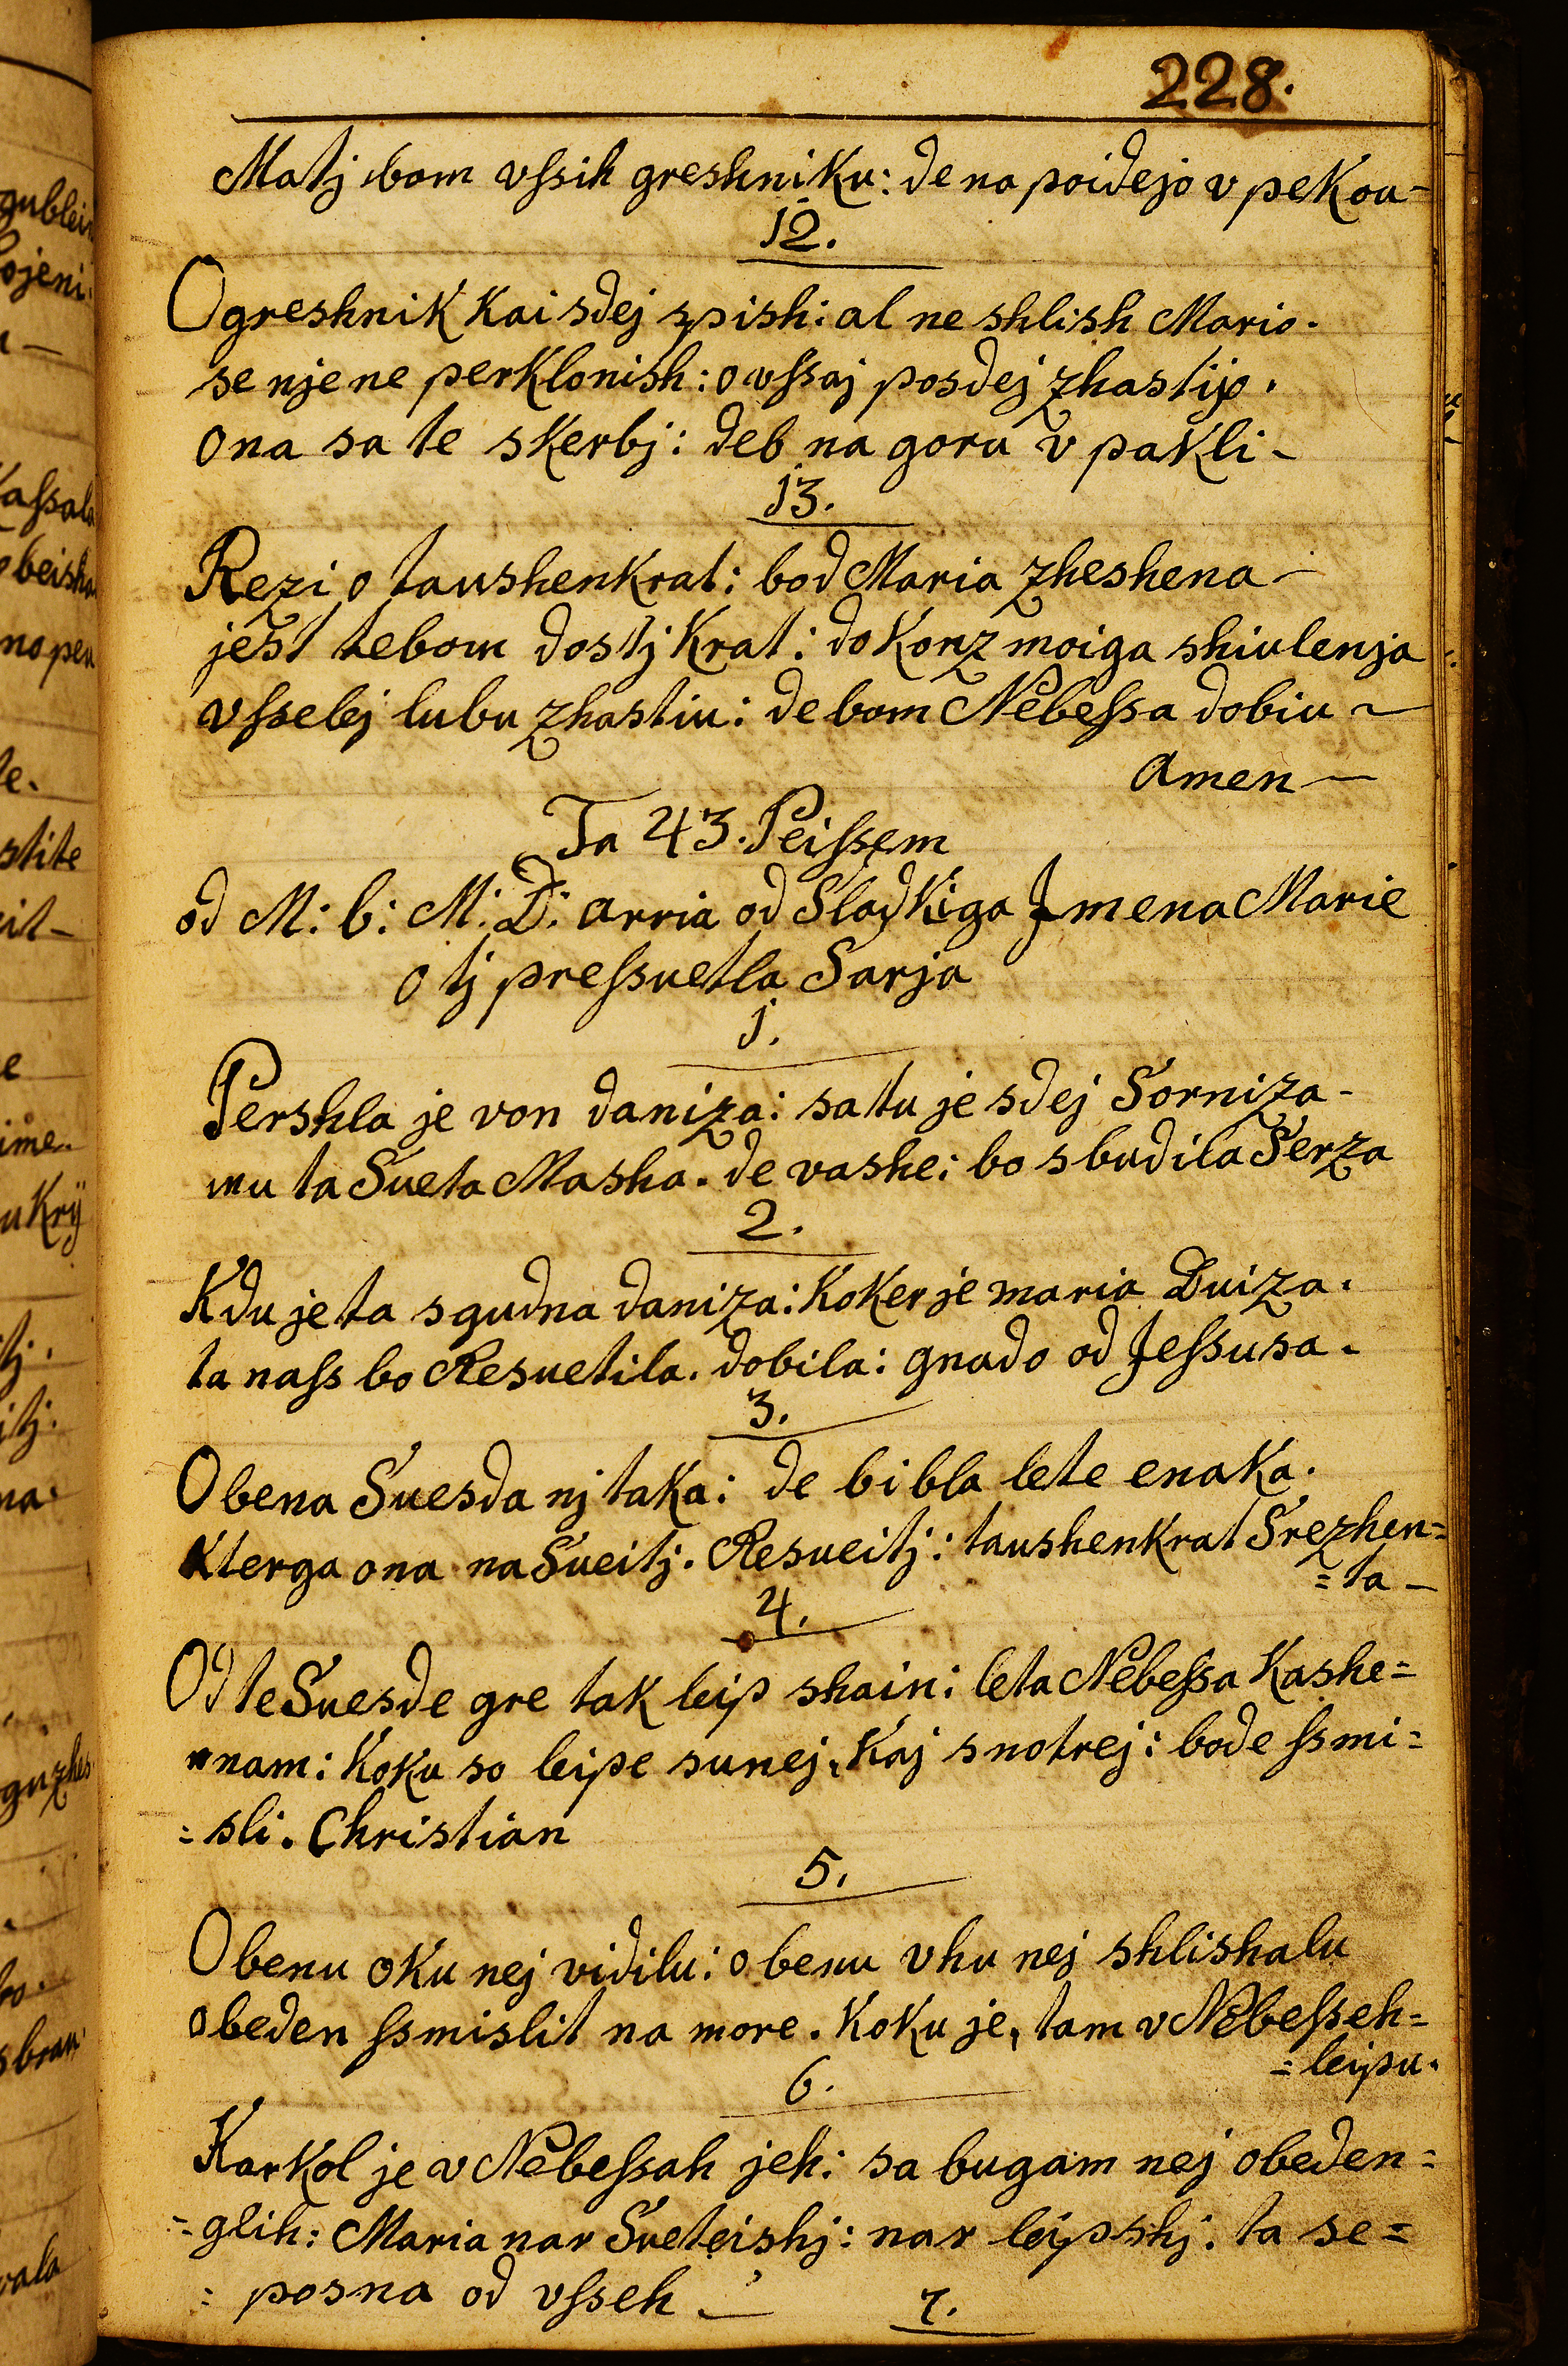 228.
Matj bom vſsih greshniku: de na poidejo v pekou -
12.
O greshnik kai sdej spish: al ne shlish Mario.
se nje ne perklonish: o vſsaj posdej zhastijo.
ona sa te skerbj: deb na goru v pakli -
13.
Rezi o taushenkrat: bod Maria zheshena -
jest tebom dostj krat: do konz moiga shiulenja
vſselej lubu zhastiu: de bom Nebeſsa dobiu ~
amen -
Ta 43. Peiſsem
od M: b: M: D: arria od Sladkiga Jmena Marie
o tj preſsuetla Sarja
1.
Pershla je von daniza: sa tu je sdej Sorniza -
mu ta Sueta Masha. de vashe: bo sbudila Serza
2.
Kdu je ta sgudna daniza: koker je maria Duiza.
ta naſs bo Resuetila. dobila: gnado od Jeſsusa.
3.
Obena Suesda nj taka: de bi bla lete enaka.
kterga ona na Sueitj. Resueitj: taushenkrat Srezhen=
=ta -
4.
Od te Suesde gre tak leip shain: leta Nebeſsa kashe=
nam: koku so leipe sunej, kaj snotrej: bode ſsmi=
=sli. Christian
5.
Obenu oku nej vidilu: obenu vhu nej shlishalu
obeden ſsmislit na more. koku je, tam v Nebeſseh=
=leipu.
6.
Karkol je v Nebeſsah jeh: sa bugam nej obeden=
=glih: Maria nar Sveteishj: nar leipshj. ta se=
=posna od vſseh -
7.